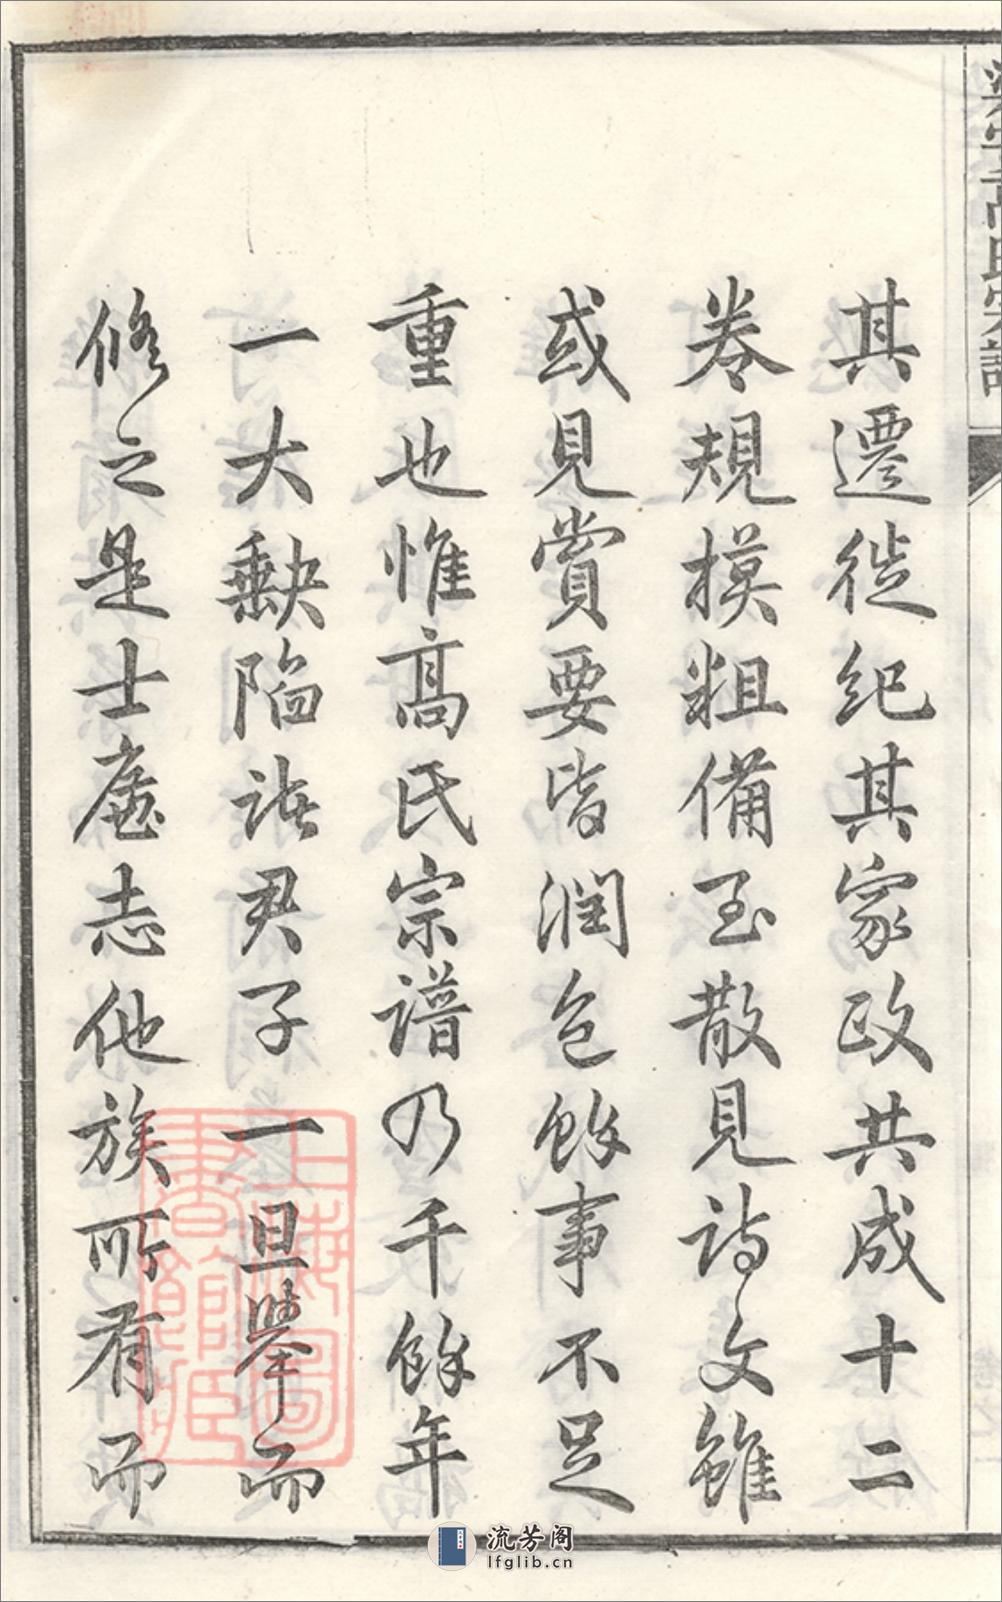 其遷徙紀其家政共成十二
卷規模粗備至散見詩文雖
或見賞要皆潤色餘事不足
重也惟高氏宗譜乃千餘年
一大缺陷諸君子一旦舉而
修之是士庶志他族所有而
高氏宗譜
上海圖書館藏
流芳阁
lfglib.cn